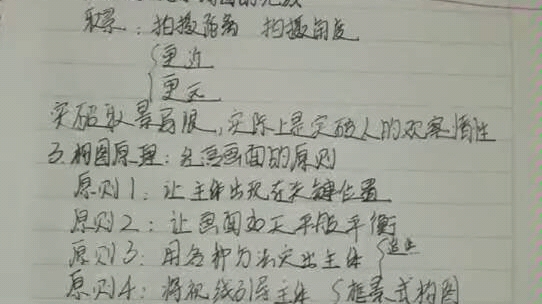 取景：拍摄距离 拍摄角度
更近
更远
突破取景局限,实际上是突破人的观察惰性
3.构图原理：经营画面的原则
原则1：让主体出现在关键位置
原则2：让画面如天平般平衡
原则3：用各种方法突出主体
原则4：将视线引导主体 框景式构图